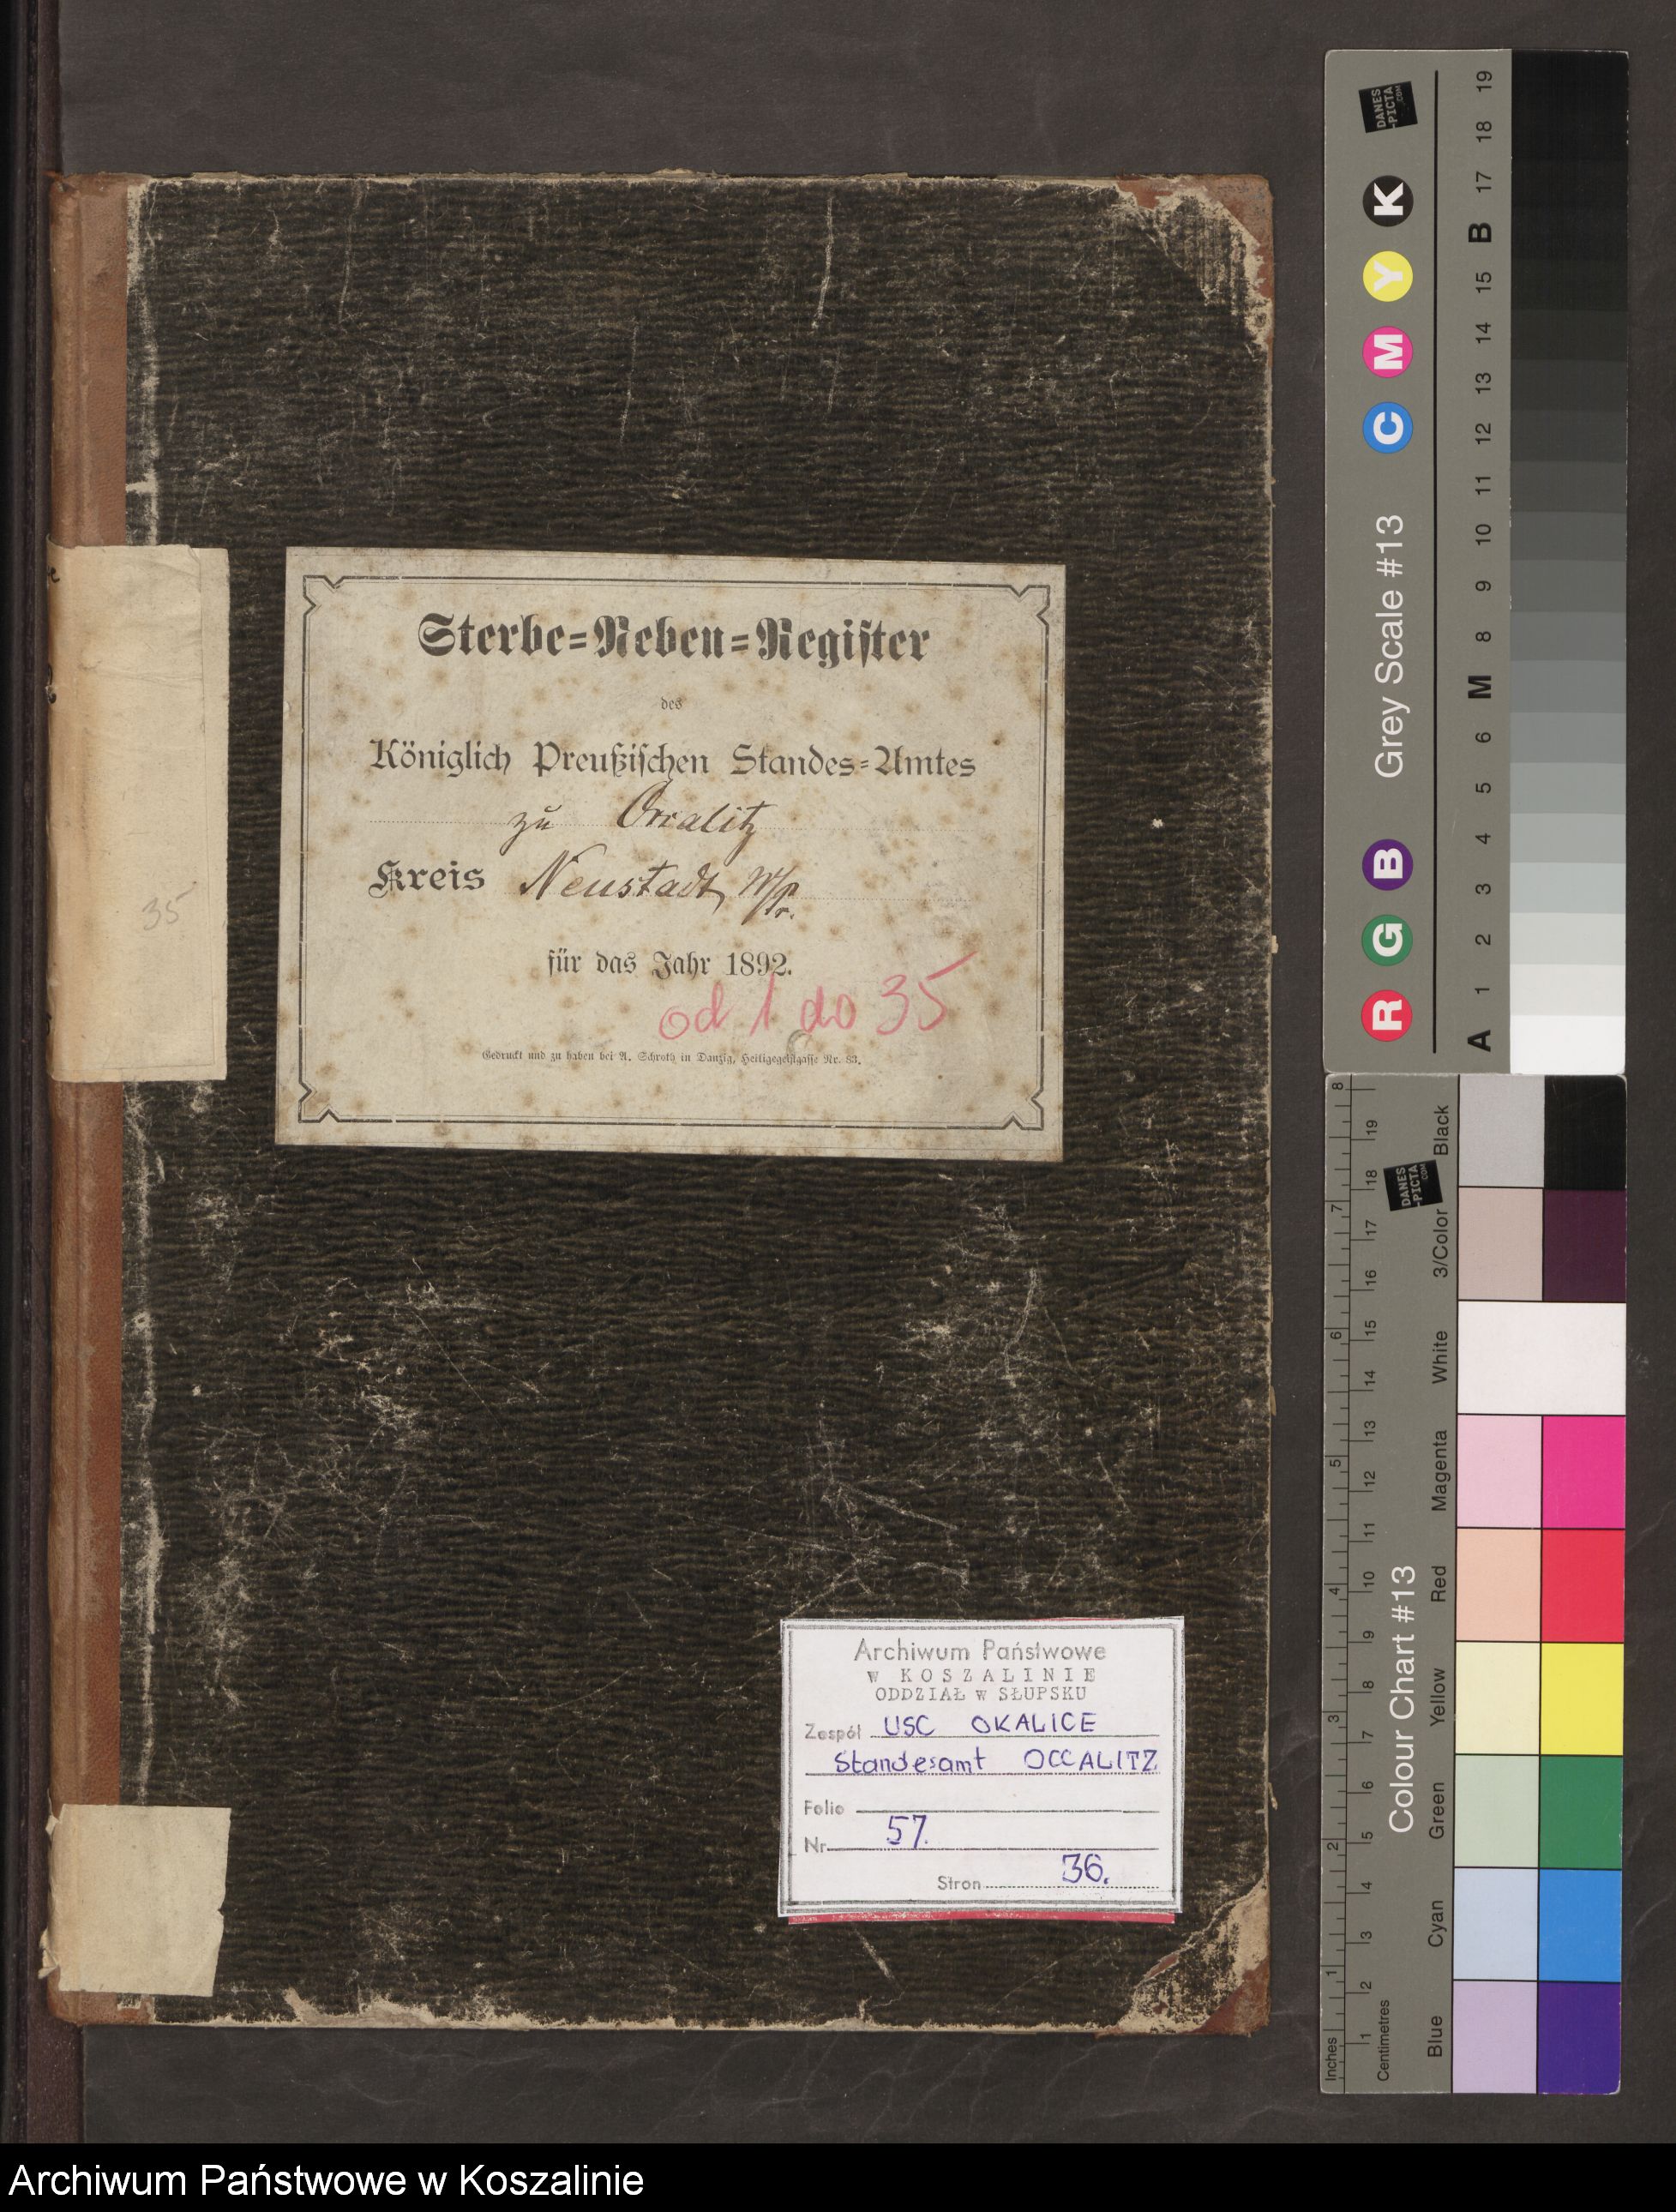 Sterbe=Neben=Regiſter
des
Königlich Preußiſchen Standes=Amtes
zu Occalitz
Kreis Neustadt W/Pr.
für das Jahr 1892.
od 1 do 35
Gedruckt und zu haben bei A. Schroth in Danzig, Heiligegeiſtgaſſe Nr. 83.
35
Archiwum Państwowe
W KOSZALINIE
ODDZIAŁ W SŁUPSKU
Zespół USC OKALICE
Standesamt OCCALITZ
Folio
Nr 57.
Stron 36.
DANES
-PICTA
.COM
R G B C M Y K
Grey Scale #13
A 1 2 3 4 5 6 M 8 9 10 11 12 13 14 15 B 17 18 19
DANES
-PICTA
.COM
Colour Chart #13
Blue Cyan Green Yellow Red Magenta White 3/Color Black
Inches 1 2 3 4 5 6 7 8
Centimetres 1 2 3 4 5 6 7 8 9 10 11 12 13 14 15 16 17 18 19
Archiwum Państwowe w Koszalinie